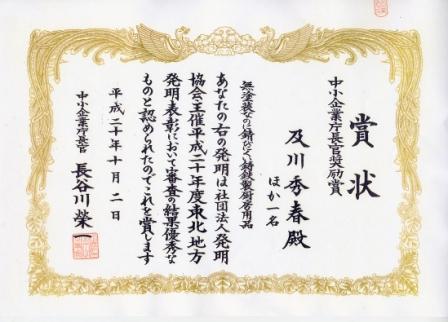 賞状
中小企業庁長官奨励賞
及川秀春殿
ほか一名
無塗装なのに錆びにくい鋳鉄製厨房用品
あなたの右の発明は社団法人発明
協会主催平成二十年度東北地方
発明表彰において審査の結果優秀な
ものと認められたのでこれを賞します
平成二十年十月二日
中小企業庁長官 長谷川榮一